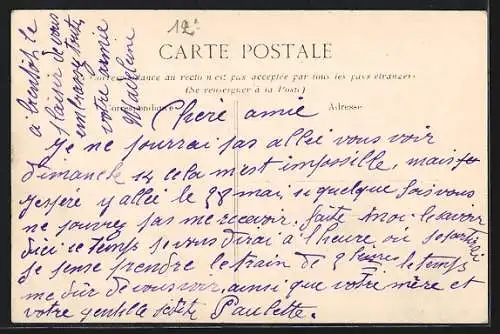 12
CARTE POSTALE
Correspondance au recto n'est pas acceptée par tous les pays étrangers
(Se renseigner à la Poste)
Correspondance
Adresse
Chère amie
Je ne pourrai pas allée vous voir
dimanche 14 cela m'est impossible, mais je
j'espère y allée le 28 mai si quelque fois vous
ne pouvez pas me recevoir, faite moi-le savoir
d'ici ce temps je vous dirai à l'heure où je partirai
je pense prendre le train de 9 heures le temps
me dûr de vous voir, ainsi que votre mère et
votre gentille petite Paulette.
à bientôt le
plaisir de vous
embrasser toute,
votre amie
Madeleine